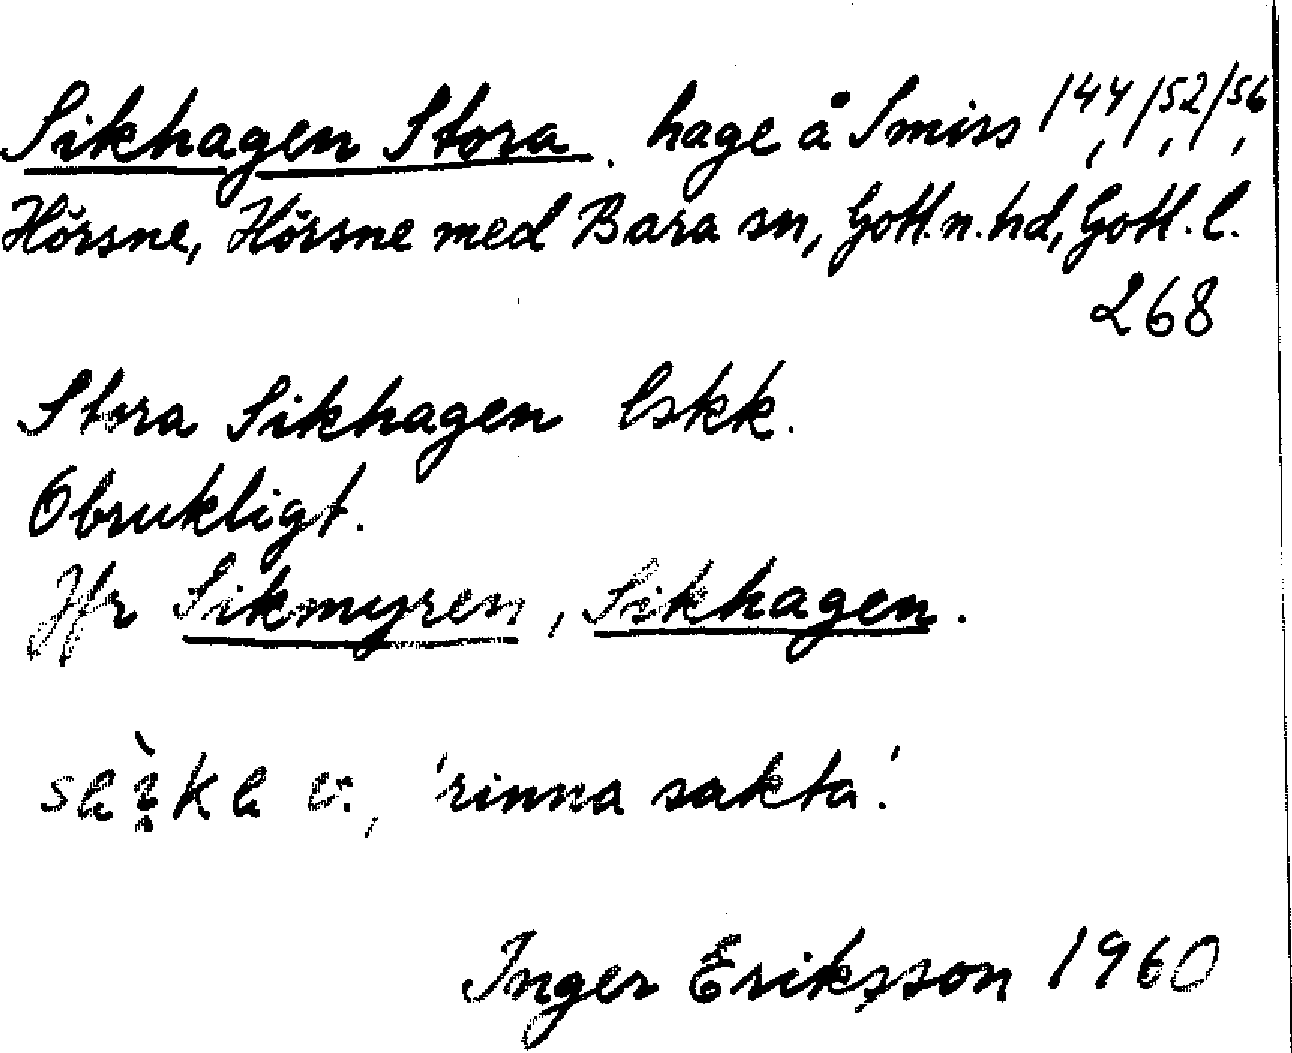 Sikhagen Stora. hage å Smiss 1⁴⁴, 1⁵², 1⁵⁶,
Hörsne, Hörsne med Bara sn, Gotl.n.hd, Gotl.l.
268
Stora Sikhagen lskk.
Obrukligt.
Jfr Sikmyren, Sikhagen.
v., 'rinna sakta'.
Inger Eriksson 1960